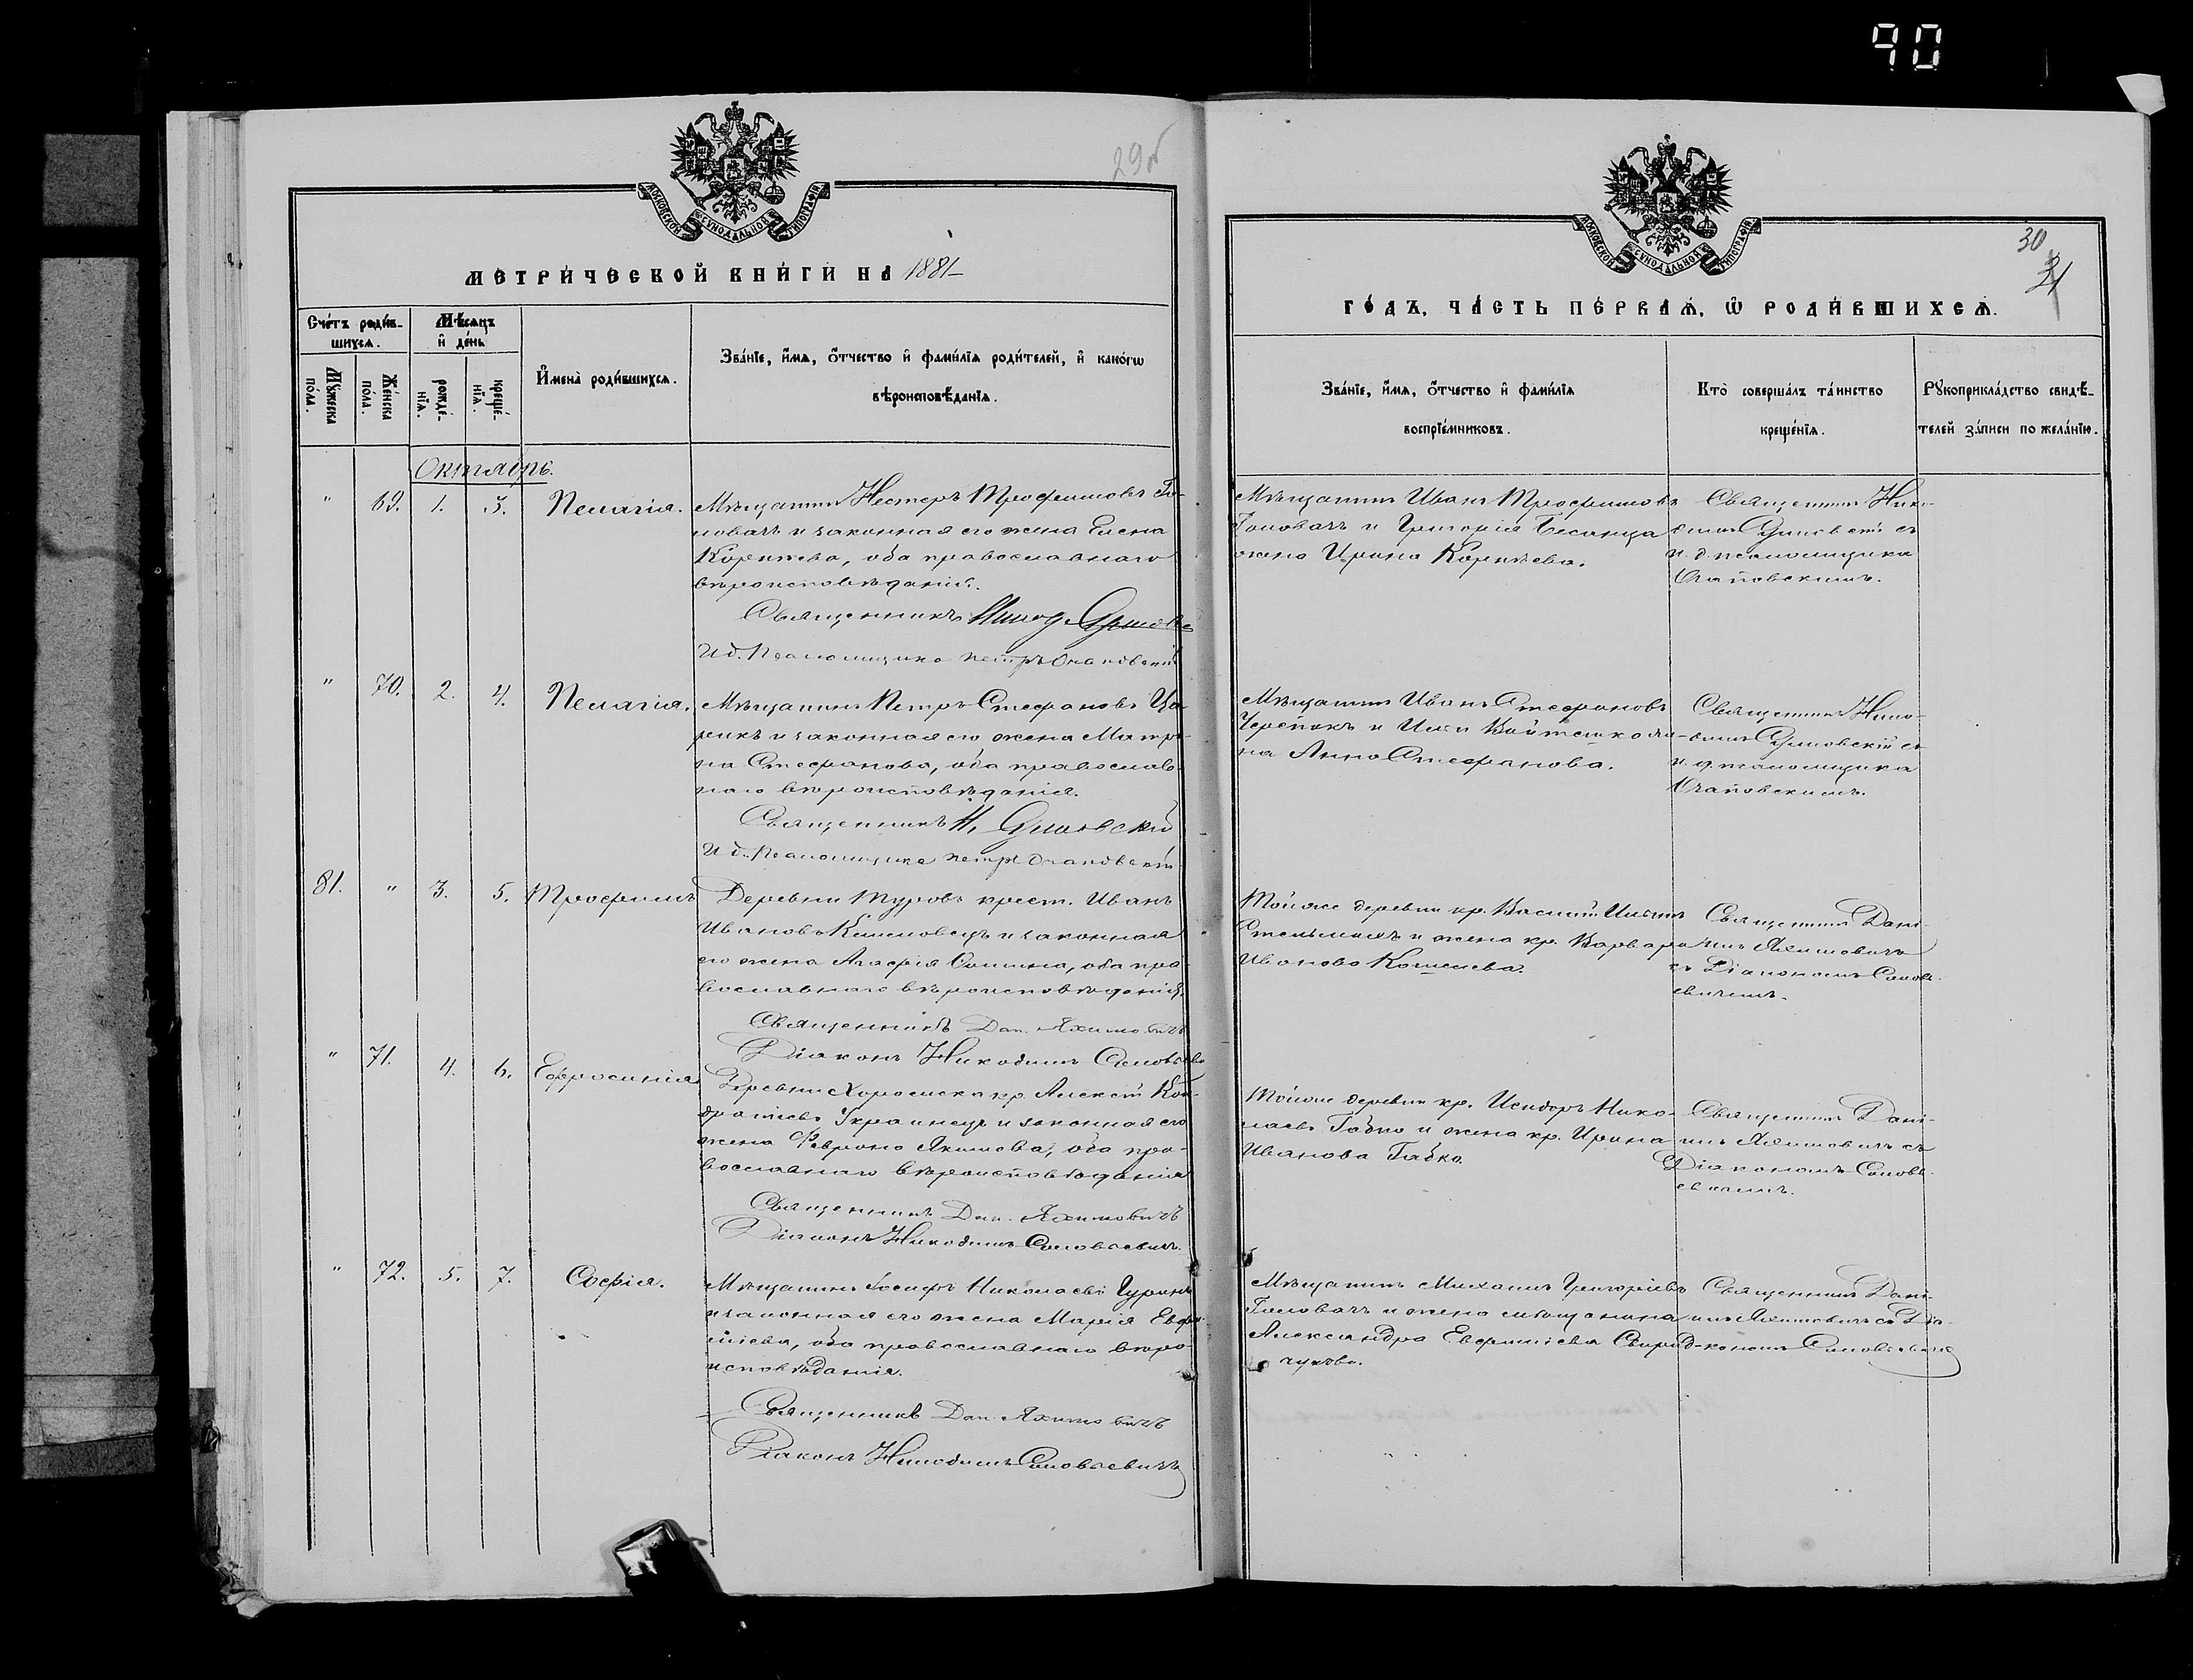 90
29
МОСКОВСКОЙ СѴНОДАЛЬНОЙ ТИПОГРАФІИ
МЕТРИ́ЧЕСКОЙ КНИ́ГИ НА 1881
Сче́тъ роди́в-
шихсѧ.
Мѣ́сѧцъ
и҆ де́нь
Мꙋ́жеска
по́ла.
Же́нска
по́ла.
рожде́-
нїѧ.
креще́-
нїѧ.
И҆мена̀ роди́вшихсѧ.
Зва́нїе, и҆́мѧ, ѻ҆́тчество и҆ фами́лїѧ роди́телей, и҆ како́гѡ
вѣроисповѣ́данїѧ.
Октябрь.
" 69. 1. 3. Пелагія. Мѣщанинъ Несторъ Трофимовъ Го-
ловачъ и законная его жена Елена
Корнѣева, оба православнаго
вѣроисповѣданія.
Священникъ
И. д. Псаломщика Петръ Очаповскій
" 70. 2. 4. Пелагія. Мѣщанинъ Петръ Стефановъ Ца-
рикъ и законная его жена Матро-
на Стефанова, оба православ-
наго вѣроисповѣданія.
Священникъ Н.
И. д. Псаломщика Петръ Очаповскій
81. " 3. 5. Трофимъ Деревни Туровъ крест. Иванъ
Ивановъ Климовецъ и законная
его жена Агафія, оба пра-
вославнаго вѣроисповѣданія.
Священникъ Дан. Яхимовичъ
Діаконъ Никодимъ Соловьевичъ
" 71. 4. 6. Ефросинія Деревни Хоромска кр. Алексѣй Кон-
дратіевъ Украинецъ и законная его
жена Феврона Якимова, оба пра-
вославнаго вѣроисповѣданія
Священникъ Дан. Яхимовичъ
Діаконъ Никодимъ Соловьевичъ.
" 72. 5. 7. Софія. Мѣщанинъ Іосифъ Николаевъ Гуринъ
и законная его жена Марія Евфи-
міева, оба православнаго вѣро-
исповѣданія.
Священникъ Дан. Яхимовичъ
Діаконъ Никодимъ Соловьевичъ
МОСКОВСКОЙ СѴНОДАЛЬНОЙ ТИПОГРАФІИ
30
31
ГО́ДЪ, ЧА́СТЬ ПЕ́РВАѦ, Ѽ РОДИ́ВШИХСѦ.
Зва́нїе, и҆́мѧ, ѻ҆́тчество и҆ фами́лїѧ
воспрїе́мниковъ.
Кто̀ соверша́лъ та́инство
креще́нїѧ.
Рꙋкоприкла́дство свидѣ́-
телей за́писи по жела́нїю.
Мѣщанинъ Иванъ Трофимовъ
Головачъ и Григорія
жена Ирина Корнѣева.
Священникъ Нико-
димъ съ
и. д. псаломщика
Очаповскимъ.
Мѣщанинъ Иванъ Стефановъ
Черепокъ и Ильи же-
на Анна Стефанова.
Священникъ Нико-
димъ съ
и. д. псаломщика
Очаповскимъ.
Той же деревни кр. Василій Ильинъ
и жена кр. Варвара
Иванова Кошелева.
Священникъ Дані-
илъ Яхимовичъ
съ Діакономъ Соловь-
евичемъ.
Той же деревни кр. Исидоръ Нико-
лаевъ Бабко и жена кр. Ирина
Иванова Бабко.
Священникъ Дані-
илъ Яхимовичъ съ
Діакономъ Соловь-
евичемъ.
Мѣщанинъ Михаилъ Григоріевъ
Головачъ и жена мѣщанина
Александра Евфиміева Свирид-
чукова.
Священникъ Дані-
илъ Яхимовичъ съ Діа-
кономъ Соловьевичемъ